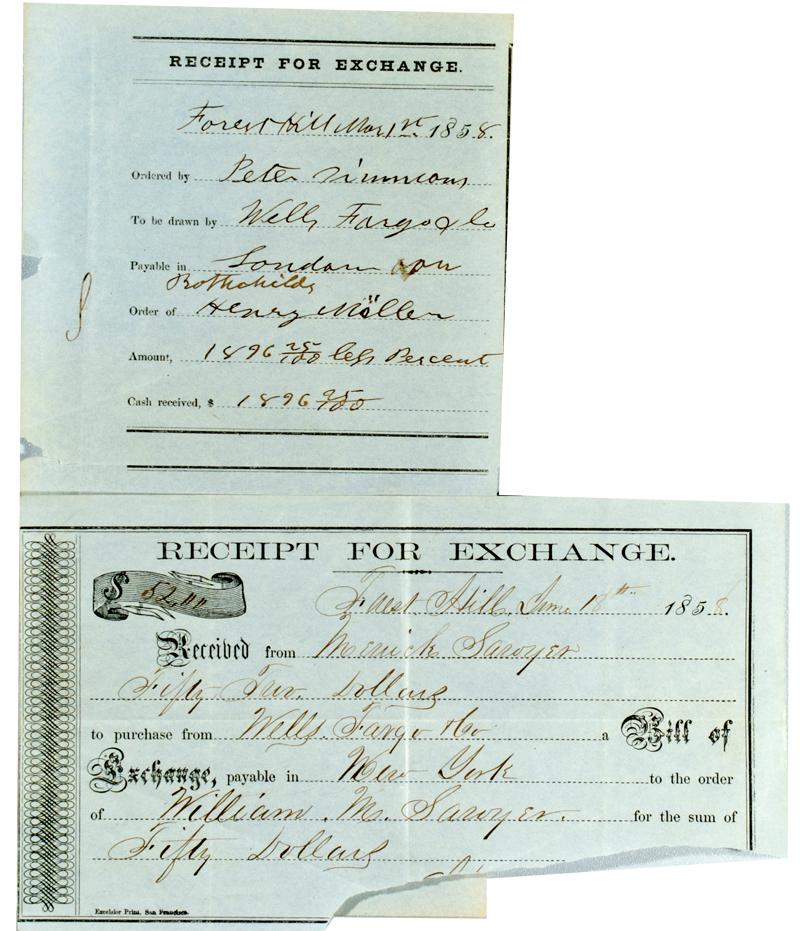 RECEIPT FOR EXCHANGE.
Forest Hill Mar 1st. 1858.
Ordered by Peter Simmons
To be drawn by Wells Fargo & Co
Payable in London on
Rothchilds
Order of Henry Möller
Amount, 1896 25/100 less Percent
Cash received, $ 1896 25/100
RECEIPT FOR EXCHANGE.
$ 52,00
Forest Hill, June 18th 1858.
Received from Merrick Sawyer
Fifty Two Dollars
to purchase from Wells Fargo & Co a Bill of
Exchange, payable in New York to the order
of William M. Sawyer. for the sum of
Fifty Dollars
Excelsior Print, San Francisco.